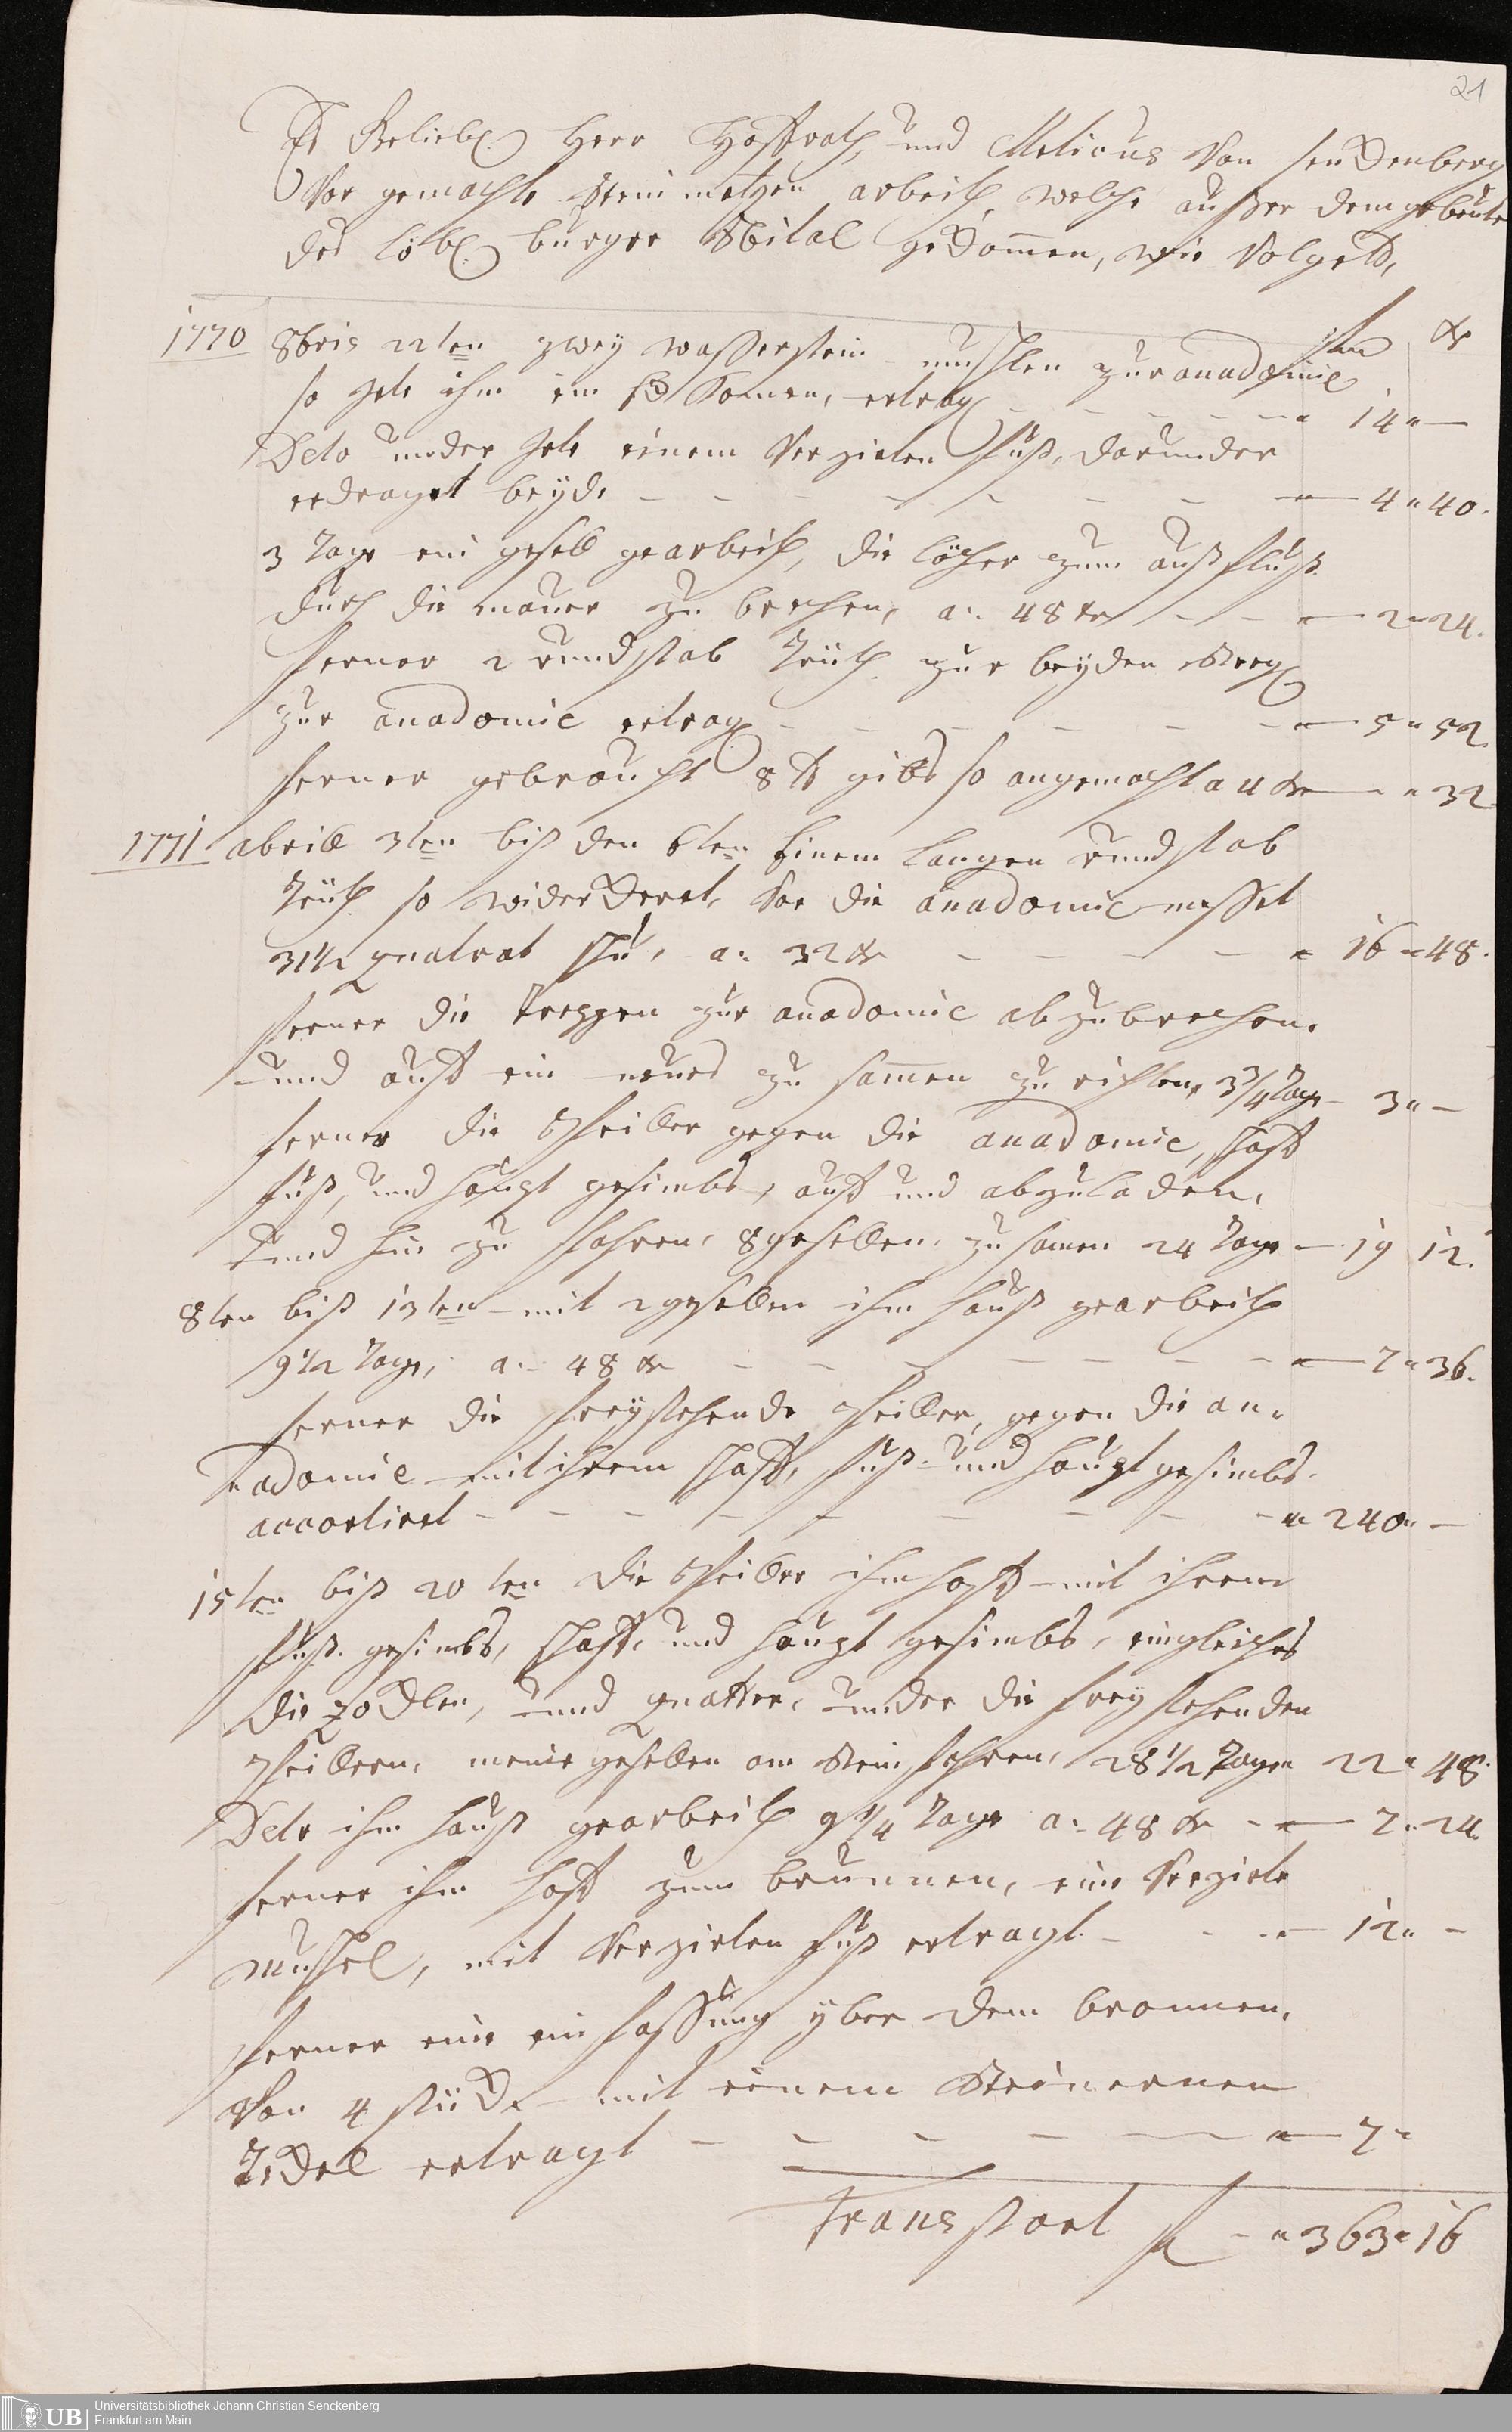 21
Beliebe Herr Hoffrath und Meticus Von senckenberg
Vor gemachte steinmetzen arbeith, welche außer dem gebeute
des löbl. burger Sbital gekommen, wie Volgett,
fl xr
1770 8bris 22ten zwey wasserstein muschlen zur anadomie
so jete ihm komen, ertrag 14 " —
Deto under jete einem Verzirten fuß, darunder
erdraget beyde — 4 " 40.
3 Tage ein gesell gearbeith, die löcher zum außfluß
durch die mauer zu brechen, a. 48 xr — 2 " 24.
ferner 2 rundstab zur beyden
zur anadomie ertrag — 5 " 52.
ferner gebraucht 8 ℔ gibs so angemacht a 4 xr — " 32
1771 abrill 3ten biß den 6ten Einem langen rundstab
so Vor die anadomie messet
31½ quatrat schu, a. 32 xr — 16 " 48.
ferner die treppen zur anadomie abzubrechen,
und auff ein neues zu samen zu richten, 3¾ Tage — 3 " —
ferner die Pfeiller gegen die anadomie, schaft
fuß, und haupt gesimbs, auff und abzuladen,
und hin zu fahren, 8 gesellen, zusamen 24 Tage — 19 12.
8ten biß 13ten mit 2 gesellen ihm hauß gearbeith
9½ Tage, a. 48 xr — 7 " 36.
ferner die freystehende Pfeiller, gegen die an-
adomie mit ihrem schafft, fuß und haupt gesimbs.
accortiret — " 240 " —
15ten biß 20ten die Pfeiller ihm hoff mit ihrem
fuß gesimbs, schafft, und haupt gesimbs, eingleiches
die zocklen, und quatter, under die freystehenden
Pfeillern, meine gesellen am stein fahren, 28½ Tagen 22 " 48.
Deto ihm hauß gearbeith 9¼ Tage a. 48 xr — 7 " 24.
ferner ihm hoff zum brunnen, eine Verzirte
Muschel, mit Verzirten fuß ertragt — 12 " —
ferner eine einfassung yber dem bronnen,
Von 4 stücke mit einem Steinernen
deckel ertragt — 7 "
Transport fl — " 363 " 16
UB Universitätsbibliothek Johann Christian Senckenberg
Frankfurt am Main